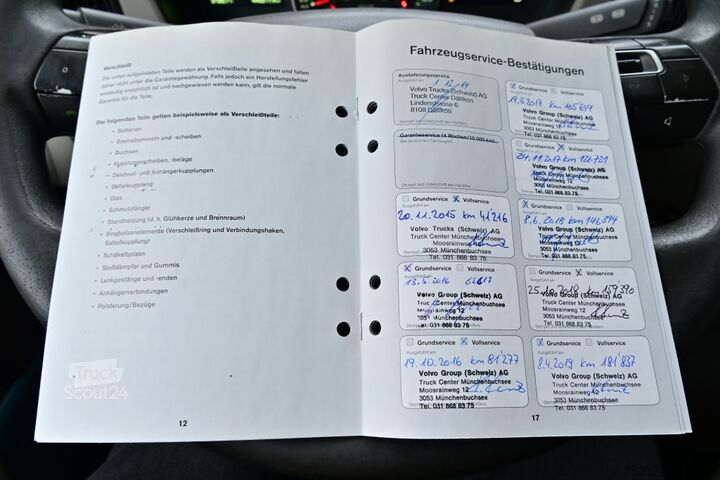 Verschleiß
Die unten aufgelisteten Teile werden als Verschleißteile angesehen und fallen
daher nicht unter die Garantiegewährung. Falls jedoch ein Herstellungsfehler
eindeutig ersichtlich ist und nachgewiesen werden kann, gilt die normale
Garantie für die Teile.
Die folgenden Teile gelten beispielsweise als Verschleißteile:
- Batterien
- Bremstrommeln und -scheiben
- Buchsen
- Kupplungsscheiben, -beläge
- Deichsel- und Anhängerkupplungen
- Sattelkupplung
- Glas
- Schmutzfänger
- Standheizung (d. h. Glühkerze und Brennraum)
- Ringbolzenelemente (Verschleißring und Verbindungshaken,
Sattelkupplung)
- Schäkelbolzen
- Stoßdämpfer und Gummis
- Lenkgestänge und -enden
- Anhängerverbindungen
- Polsterung/Bezüge
12
Truck
Scout24
Fahrzeugservice-Bestätigungen
Auslieferungsservice
Volvo Trucks (Schweiz) AG
Truck Center Dällikon
Lindenstrasse 6
8108 Dällikon
Stempel und Unterschrift des Händlers
Garantieservice (4 Wochen/10.000 km)
Stempel und Unterschrift des Händlers
Grundservice X Vollservice
Ausgeführt am
20.11.2015 km 41'216
Volvo Trucks (Schweiz) AG
Truck Center Münchenbuchsee
Moosrainweg 12
3053 Münchenbuchsee
Tel. 031 868 83 75
X Grundservice Vollservice
Ausgeführt am
13.5.2016 62617
Volvo Group (Schweiz) AG
Truck Center Münchenbuchsee
Moosrainweg 12
3053 Münchenbuchsee
Tel. 031 868 83 75
Grundservice X Vollservice
Ausgeführt am
19.10.2016 km 81'277
Volvo Group (Schweiz) AG
Truck Center Münchenbuchsee
Moosrainweg 12
3053 Münchenbuchsee
Tel. 031 868 83 75
X Grundservice Vollservice
19.5.2017 km 105'649
Volvo Group (Schweiz) AG
Truck Center Münchenbuchsee
Moosrainweg 12
3053 Münchenbuchsee
Grundservice X Vollservice
24.11.2017 km 126'721
Volvo Group (Schweiz) AG
Truck Center Münchenbuchsee
Moosrainweg 12
3053 Münchenbuchsee
Tel. 031 868 83 75
X Grundservice Vollservice
8.6.2018 km 146'594
Volvo Group (Schweiz) AG
Truck Center Münchenbuchsee
Moosrainweg 12
3053 Münchenbuchsee
Tel. 031 868 83 75
Grundservice X Vollservice
25.10.2018 km 159'390
Volvo Group (Schweiz) AG
Truck Center Münchenbuchsee
Moosrainweg 12
3053 Münchenbuchsee
Tel. 031 868 83 75
X Grundservice Vollservice
Ausgeführt am
8.4.2019 km 181'837
Volvo Group (Schweiz) AG
Truck Center Münchenbuchsee
Moosrainweg 12
3053 Münchenbuchsee
Tel. 031 868 83 75
17